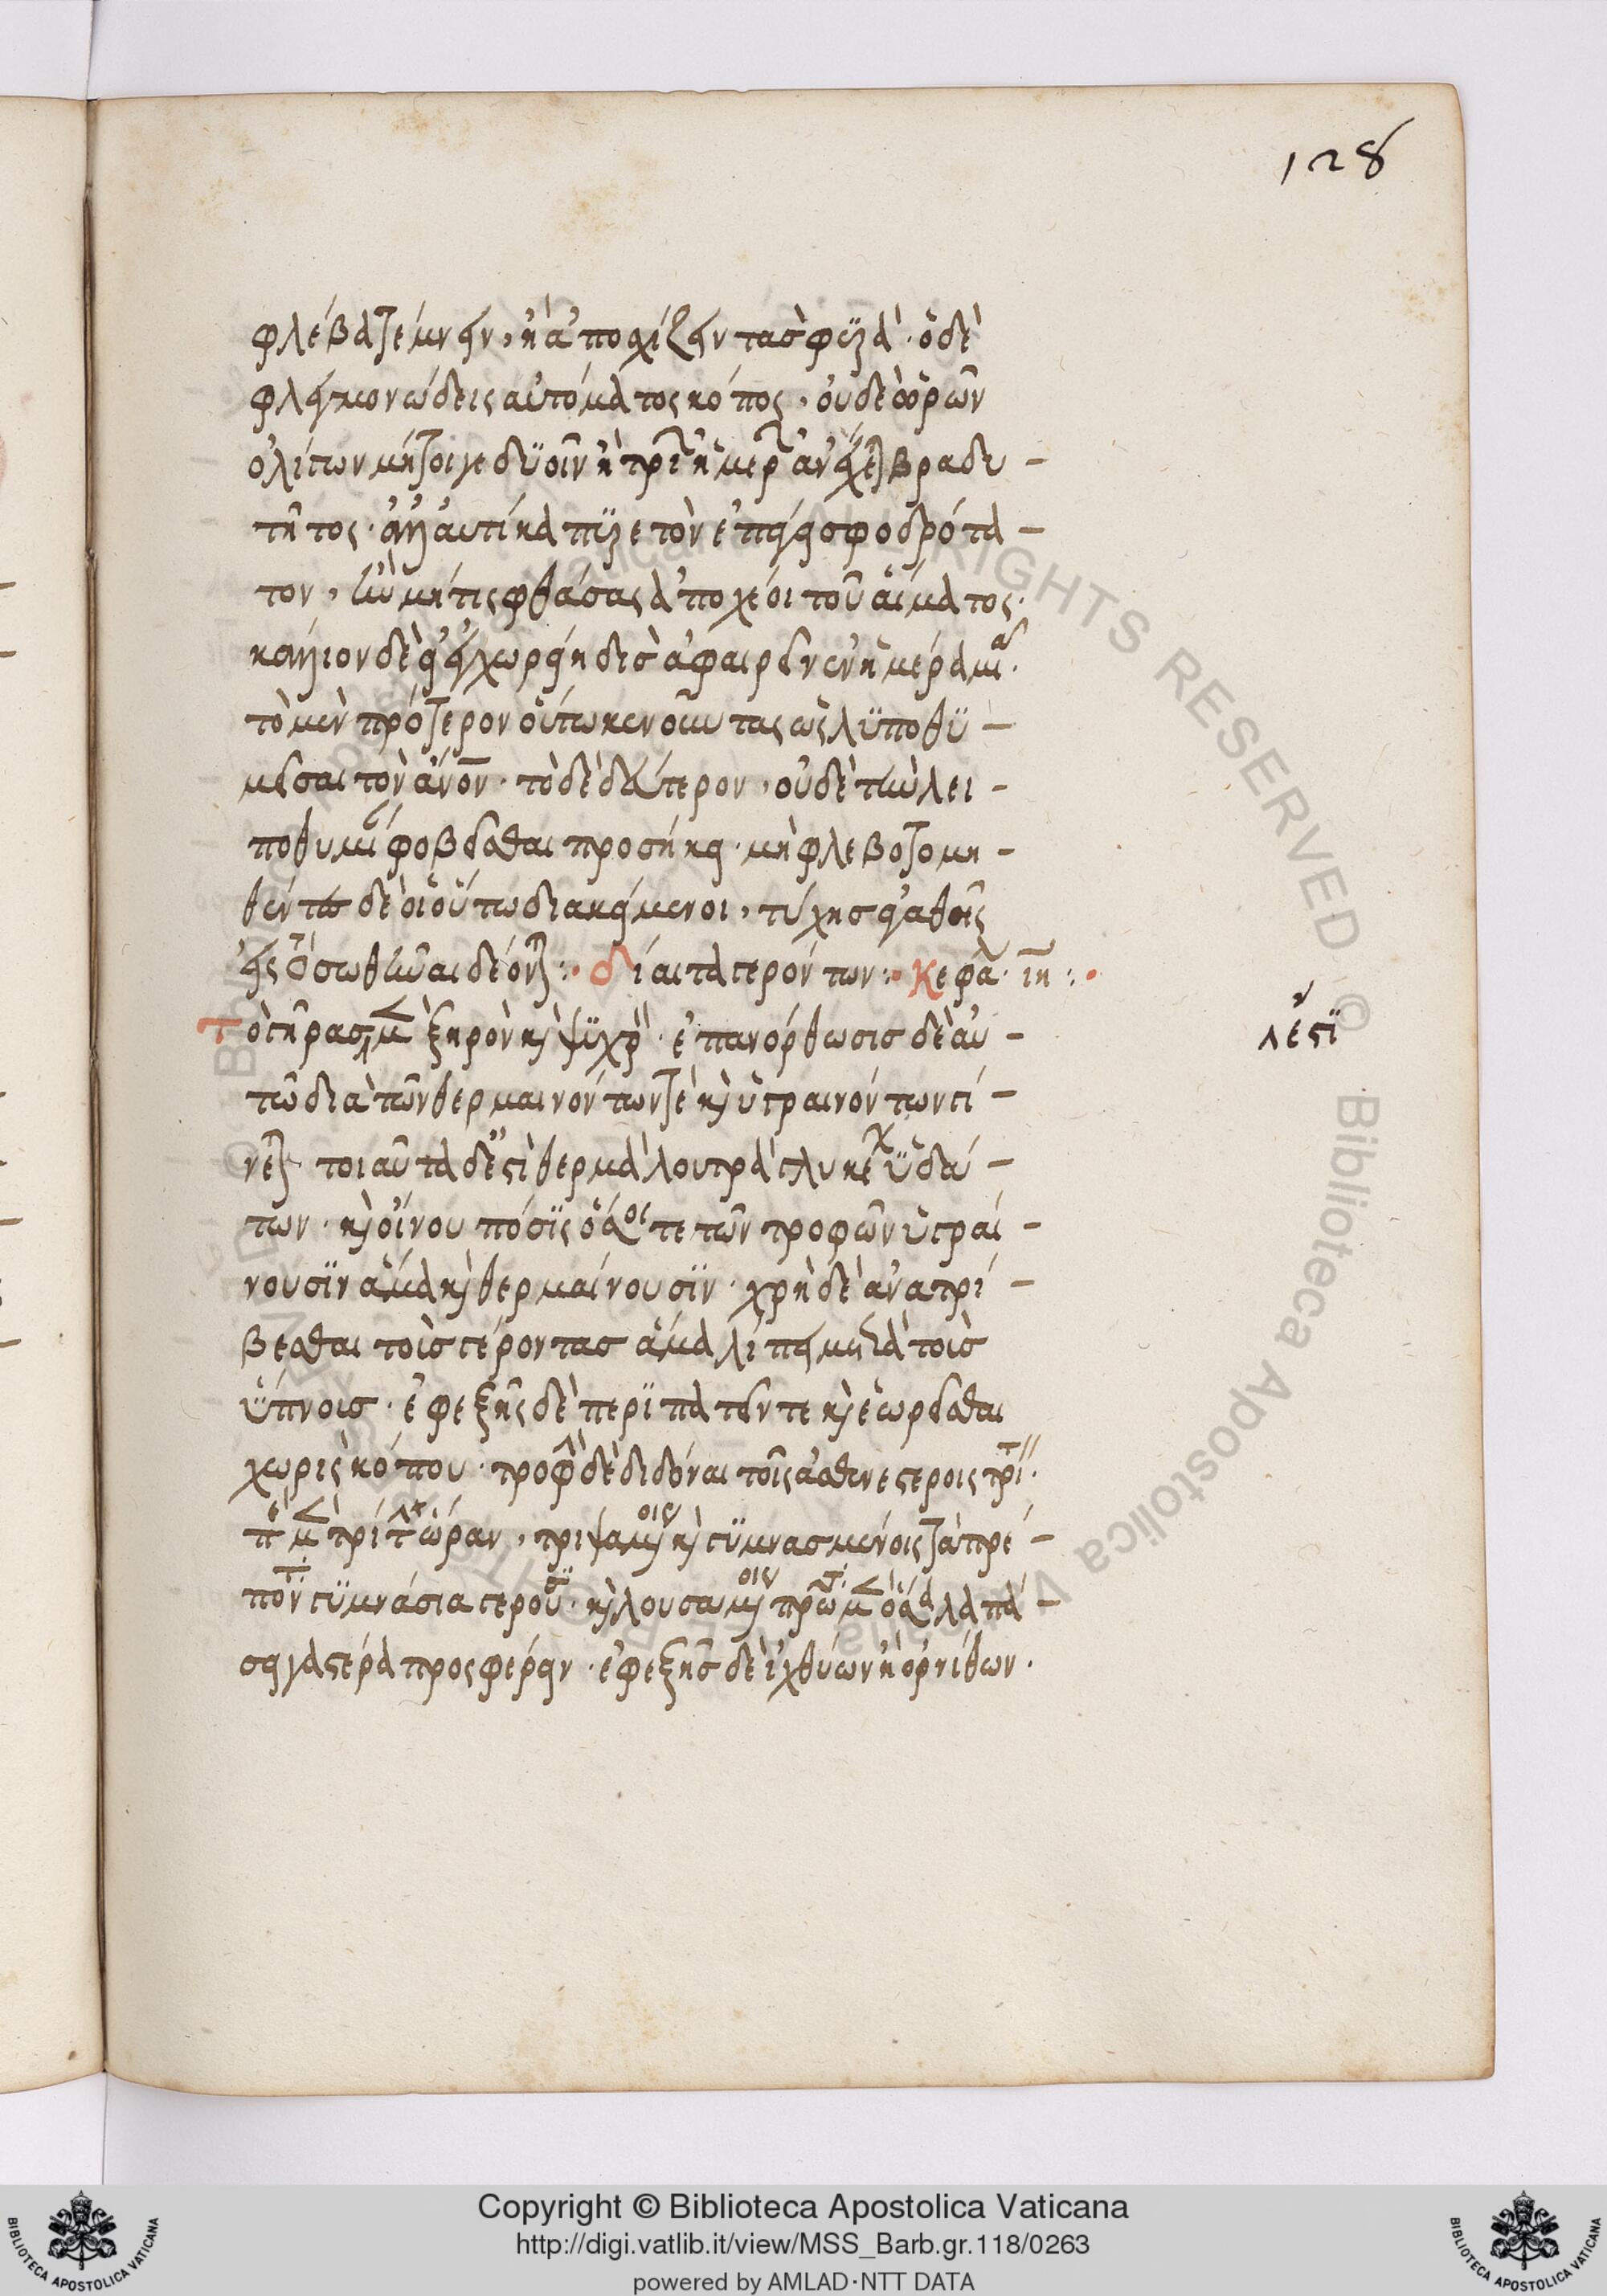 128
φλέβα τέμνειν, ἢ ἀποσχάζειν τὰ σφυρά· ὁ δὲ
φλεγμονώδεις αὐτόματος κόπος, οὐδὲ ὡρῶν
ὀλίγων μήτοιγε δυοῖν ἢ τριῶν ἡμερῶν ἀνέχεται βραδυ-
τῆτος· ἀλλ' αὐτίκα πυρετὸν ἐπάγει σφοδρότα-
τον, ἢν μή τις φθάσας ἀποχέοι τοῦ αἵματος·
κάλλιον δὲ εἰ ἐγχωρεῖ δὶς ἀφαιρεῖν ἐν ἡμέρα μιᾶ·
τὸ μὲν πρότερον οὕτω κενοῦντας ὡς λυποθυ-
μῆσαι τὸν ἄνον· τὸ δὲ δεύτερον, οὐδὲ τὴν λει-
ποθυμίαν φοβεῖσθαι προσήκει· μὴ φλεβοτομη-
θέντες δὲ οἱ οὕτω διακείμενοι, τύχης ἀγαθῆς
εἰς τὸ σωθῆναι δέονται:· δίαιτα γερόντων:· Κεφάλ· ιη:·
Τὸ γῆρας μὲν ξηρὸν καὶ ψυχρὸν· ἐπανόρθωσις δὲ αὐ-
τῶ διὰ τῶν θερμαινόντων τὲ καὶ ὑγραινόντων γί-
νεται· τοιαῦτα δὲ ἐστὶ θερμὰ λουτρὰ γλυκέων ὑδά-
των· καὶ οἴνου πόσις ὅσαι τε τῶν τροφῶν ὑγραί-
νουσιν ἅμα καὶ θερμαίνουσιν· χρὴ δὲ ἀνατρί-
βεσθαι τοὺς γέροντας ἅμα λίπει μετὰ τοὺς
ὕπνοις· ἐφεξῆς δὲ περιπατεῖν τε καὶ ἐωρεῖσθαι
χωρὶς κόπου· τροφὴν δὲ διδόναι τοῖς ἀσθενεστέροις τρὶς·
περὶ μὲν τρίτην ὥραν, τριψαμένοις καὶ γυμνασμένοις τὰ πρέ-
ποντα γυμνάσια γέρουσι· καὶ λουσαμένοις πρῶτον μὲν ὅσα λαπά-
σει γαστέρα προσφέρειν· ἐφεξῆς δὲ ἰχθύων ἢ ὀρνίθων·
λέγι
Copyright © Biblioteca Apostolica Vaticana
http://digi.vatlib.it/view/MSS_Barb.gr.118/0263
powered by AMLAD·NTT DATA
BIBLIOTECA APOSTOLICA VATICANA
BIBLIOTECA APOSTOLICA VATICANA